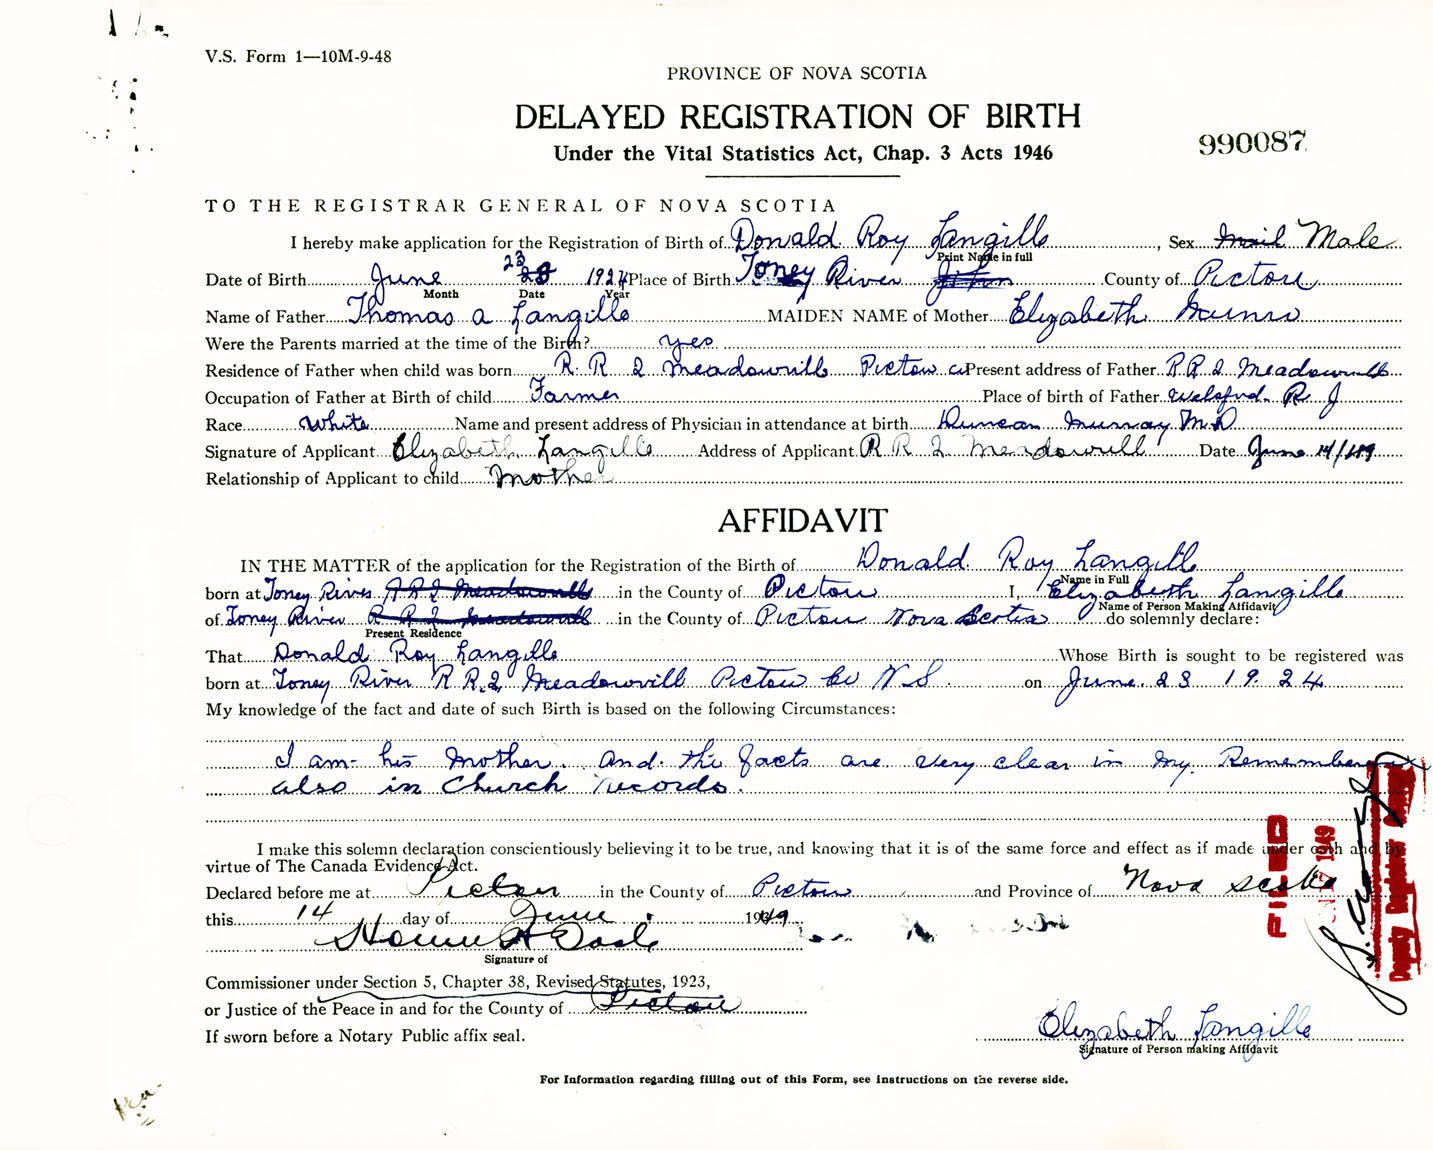 V.S. Form 1—10M-9-48
PROVINCE OF NOVA SCOTIA
DELAYED REGISTRATION OF BIRTH
990087
Under the Vital Statistics Act, Chap. 3 Acts 1946
TO THE REGISTRAR GENERAL OF NOVA SCOTIA
I hereby make application for the Registration of Birth of Donald Roy Langille, Sex Male
Print Name in full
Date of Birth June 23 1924 Place of Birth Toney River County of Pictou
Month Date Year
Name of Father Thomas A Langille MAIDEN NAME of Mother Elizabeth Munro
Were the Parents married at the time of the Birth? yes
Residence of Father when child was born R R 2 Meadowville Pictou co Present address of Father R R 2 Meadowville
Occupation of Father at Birth of child Farmer Place of birth of Father R J
Race White Name and present address of Physician in attendance at birth Duncan Murray M.D
Signature of Applicant Elizabeth Langille Address of Applicant R R 2 Meadowvill Date June 14/49
Relationship of Applicant to child Mother
AFFIDAVIT
IN THE MATTER of the application for the Registration of the Birth of Donald Roy Langille
Name in Full
born at Toney River R R 2 Meadowville in the County of Pictou I, Elizabeth Langille
Name of Person Making Affidavit
of Toney River R R 2 Meadowvill in the County of Pictou Nova Scotia do solemnly declare:
Present Residence
That Donald Roy Langille Whose Birth is sought to be registered was
born at Toney River R R.2 Meadowvill Pictou Co N.S. on June 23 1924
My knowledge of the fact and date of such Birth is based on the following Circumstances:
I am his Mother. And the facts are very clear in my
also in Church records.
I make this solemn declaration conscientiously believing it to be true, and knowing that it is of the same force and effect as if made under oath and by
virtue of The Canada Evidence Act.
Declared before me at Pictou in the County of Pictou and Province of Nova Scotia
this 14 day of June 1949
Signature of
Commissioner under Section 5, Chapter 38, Revised Statutes, 1923,
or Justice of the Peace in and for the County of Pictou
If sworn before a Notary Public affix seal.
Elizabeth Langille
Signature of Person making Affidavit
For Information regarding filling out of this Form, see instructions on the reverse side.
FILED
1949
Deputy Registrar General